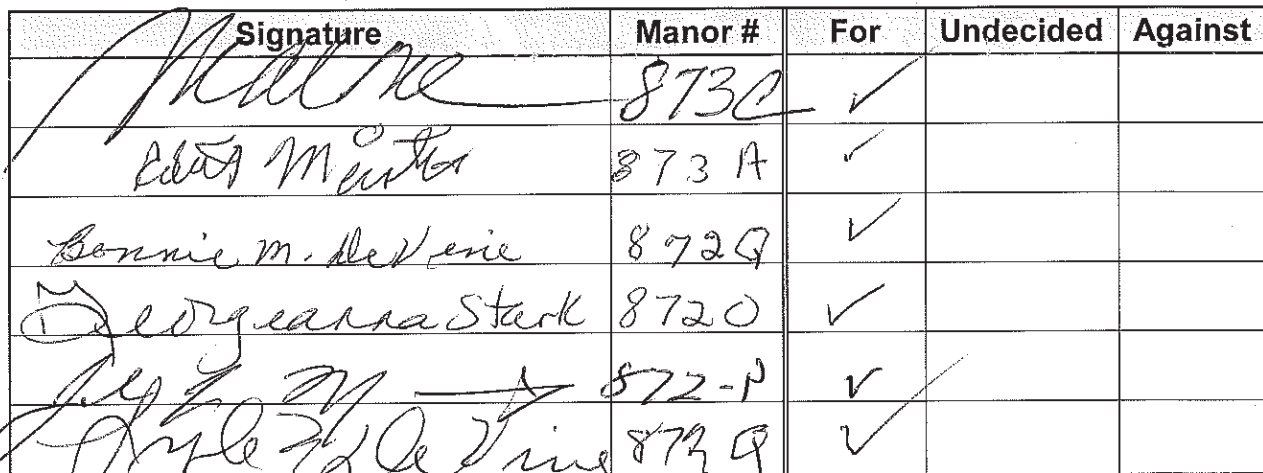 Signature Manor # For Undecided Against
873C ✓
873 A ✓
Bonnie M. DeVine 872Q ✓
Georgeanna Stark 872O ✓
872-P ✓
DeVine 872 Q ✓